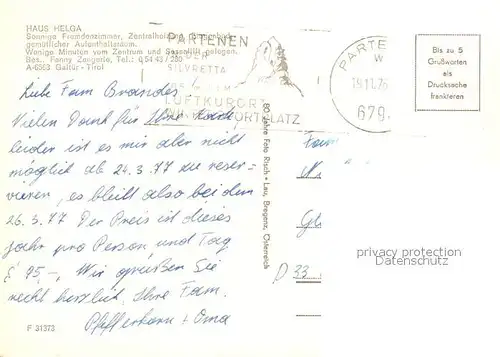 HAUS HELGA
Sonnige Fremdenzimmer, Zentralheizung,
gemütlicher Aufenthaltsraum.
Wenige Minuten vom Zentrum und Sessellift gelegen.
Bes.: Fanny Zangerle, Tel.: 0 54 43 / 250
A-6563 Galtür - Tirol
PARTENEN
DER
SILVRETTA
LUFTKURORT
SPORTPLATZ
PARTE
W
19.11.76
679
Bis zu 5
Grußworten
als
Drucksache
frankieren
Liebe Fam Brandes
Vielen Dank für Ihre Karte,
leider ist es mir aber nicht
möglich ab 24.3.77 zu reser-
vieren, es bleibt also bei dem
26.3.77 Der Preis ist dieses
Jahr pro Person und Tag
95,-, Wir grüßen Sie
recht herzlich, Ihre Fam.
Pfefferkorn + Oma
80 Jahre Foto Risch-Lau, Bregenz, Österreich
Fam
Gl
D 33
privacy protection
Datenschutz
F 31373